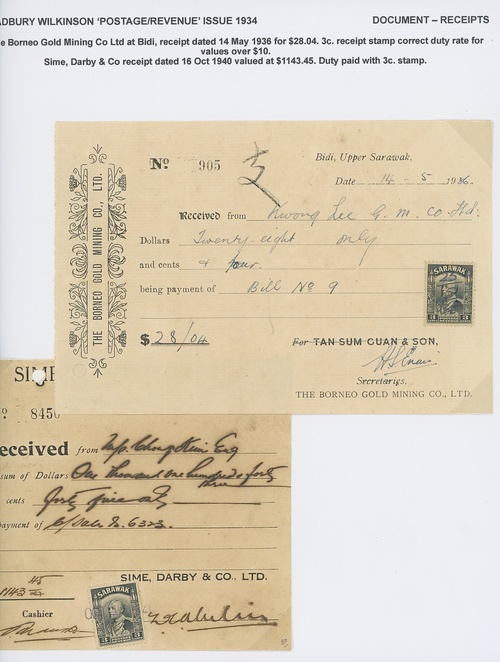 ADBURY WILKINSON ‘POSTAGE/REVENUE’ ISSUE 1934 DOCUMENT – RECEIPTS
e Borneo Gold Mining Co Ltd at Bidi, receipt dated 14 May 1936 for $28.04. 3c. receipt stamp correct duty rate for
values over $10.
Sime, Darby & Co receipt dated 16 Oct 1940 valued at $1143.45. Duty paid with 3c. stamp.
THE BORNEO GOLD MINING CO., LTD.
Nº 905
Bidi, Upper Sarawak,
Date 14 - 5 - 1936.
Received from Kwong Lee G. M. Co Ltd.
Dollars Twenty-eight only
and cents & four.
being payment of Bill Nº 9
SARAWAK
$ 28/04
For TAN SUM GUAN & SON,
Secretaries.
THE BORNEO GOLD MINING CO., LTD.
SIME
º 8450
eceived from Esq
sum of Dollars One thousand one hundred & forty
three
cents forty five only
ayment of 6323.
SIME, DARBY & CO., LTD.
1143 45
SARAWAK
Cashier